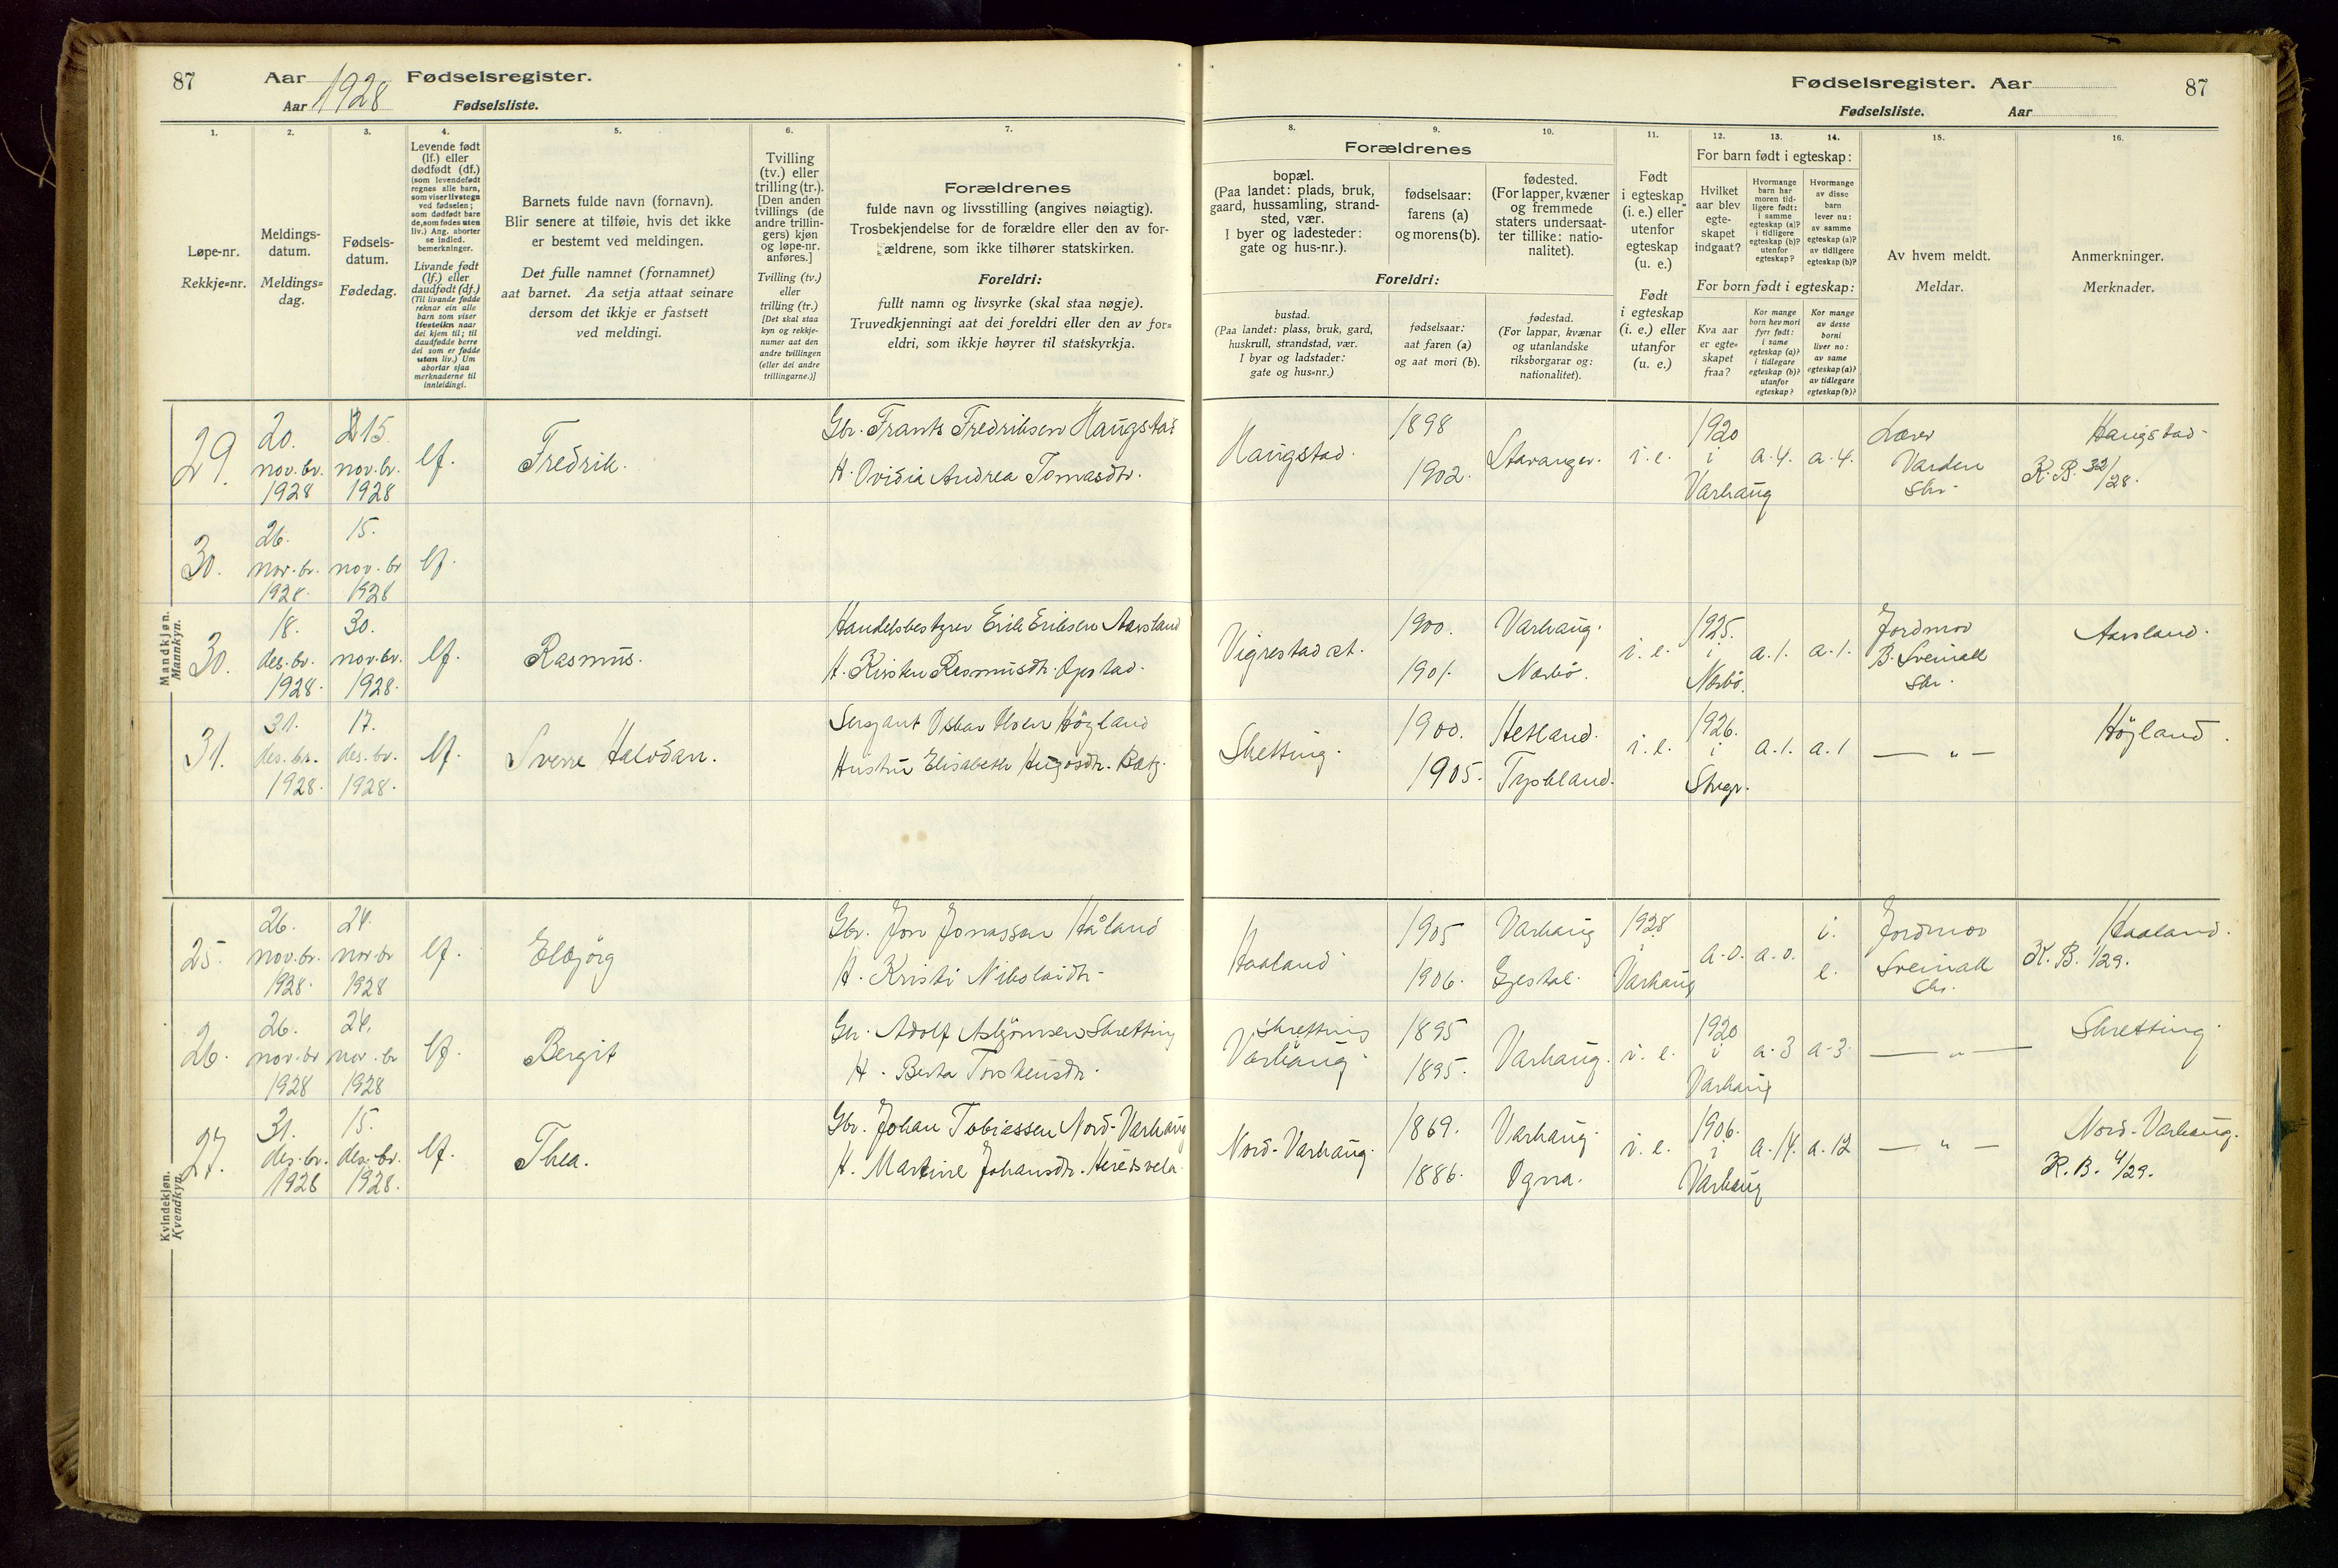 87 Aar 1928 Fødselsregister.
Aar Fødselsliste.
Fødselsregister. Aar 87
Fødselsliste. Aar
1. 2. 3. 4. 5. 6. 7. 8. 9. 10. 11. 12. 13. 14. 15. 16.
Løpe-nr.
Rekkje=nr.
Meldings-
datum.
Meldings=
dag.
Fødsels-
datum.
Fødedag.
Levende født
(lf.) eller
dødfødt (df.)
(som levendefødt
regnes alle barn,
som viser livstegn
ved fødselen;
som dødfødt bare
de, som fødes uten
liv.) Ang. aborter
se indled.
bemerkninger.
Livande født
(lf.) eller
daudfødt (df.)
(Til livande fødde
reknar ein alle
barn som viser
livsteikn naar
dei kjem til; til
daudfødde berre
dei som er fødde
utan liv.) Um
abortar sjaa
merknaderne til
innleidingi.
Barnets fulde navn (fornavn).
Blir senere at tilføie, hvis det ikke
er bestemt ved meldingen.
Det fulle namnet (fornamnet)
aat barnet. Aa setja attaat seinare
dersom det ikkje er fastsett
ved meldingi.
Tvilling
(tv.) eller
trilling (tr.).
[Den anden
tvillings (de
andre trillin-
gers) kjøn
og løpe-nr.
anføres.]
Tvilling (tv.)
eller
trilling (tr.)
[Det skal staa
kyn og rekkje-
numer aat den
andre tvillingen
(eller dei andre
trillingarne.)]
Forældrenes
fulde navn og livsstilling (angives nøiagtig).
Trosbekjendelse for de forældre eller den av for-
ældrene, som ikke tilhører statskirken.
Foreldri:
fullt namn og livsyrke (skal staa nøgje).
Truvedkjenningi aat dei foreldri eller den av for=
eldri, som ikkje høyrer til statskyrkja.
Forældrenes
bopæl.
(Paa landet: plads, bruk,
gaard, hussamling, strand-
sted, vær.
I byer og ladesteder:
gate og hus-nr.).
fødselsaar:
farens (a)
og morens (b).
fødested.
(For lapper, kvæner
og fremmede
staters undersaat-
ter tillike: natio-
nalitet).
Foreldri:
bustad.
(Paa landet: plass, bruk, gard,
huskrull, strandstad, vær.
I byar og ladstader:
gate og hus=nr.)
fødselsaar:
aat faren (a)
og aat mori (b).
fødestad.
(For lappar, kvænar
og utanlandske
riksborgarar og:
nationalitet).
Født
i egteskap
(i. e.) eller
utenfor
egteskap
(u. e.)
Født
i egteskap
(i. e.) eller
utanfor
(u. e.)
For barn født i egteskap:
Hvilket
aar blev
egte-
skapet
indgaat?
Hvormange
barn har
moren tid-
ligere født:
i samme
egteskap (a)?
i tidligere
egteskap (b)?
utenfor
egteskap?
Hvormange
av disse
barn
lever nu:
av samme
egteskap (a)?
av tidligere
egteskap (b)?
For born født i egteskap:
Kva aar
er egte=
skapet
fraa?
Kor mange
born hev mori
fyrr født:
i same
egteskap (a)?
i tidlegare
egteskap (b)?
utanfor
egteskap?
Kor mange
av desse
borni
liver no:
av same
egteskap (a)?
av tidlegare
egteskap (b)?
Av hvem meldt.
Meldar.
Anmerkninger.
Merknader.
Mandkjøn.
Mannkyn.
29. 20. nov.br. 1928 15. nov.br. 1928 lf. Fredrik. Gbr. Frants Fredriksen Haugstad
H. Ovidia Andrea Tomasdtr.
Haugstad. 1898 1902. Stavanger. i. e. 1920 i Varhaug a. 4. a. 4. Lærer Varden Skr. Haugstad
K. B. 32/28.
30. 26. nov.br. 1928. 15. nov.br 1928 lf.
30. 18. des.br. 1928. 30. nov.br. 1928. lf. Rasmus. Handelsbestyrer Erik Eriksen Aarsland
H. Kirsten Rasmusdtr. Opstad.
Vigrestad st. 1900. 1901. Varhaug. Nærbö. i. e. 1925. i Nærbö. a. 1. a. 1. Jordmor B. Sveinall Skr. Aarsland.
31. 31. des.br. 1928. 17. des.br. 1928. lf. Sverre Halvdan. Sersjant Oskar Olsen Högland
Hustru Elisabeth Hugosdtr. Bætz.
Skretting. 1900. 1905. Hetland. Tyskland. i. e. 1926. i Stvgr. a. 1. a. 1 — " — Högland.
Kvindekjøn.
Kvendkyn.
25. 26. nov.br. 1928. 24. nov.br 1928 lf. Elbjörg Gbr. Jon Jonassen Håland
H. Kristi Nikolaidtr.
Haaland 1905 1906. Varhaug Gjestal. 1928 i Varhaug a. 0. a. 0. i. e. Jordmor Sveinall Skr. Haaland.
K. B. 1/29.
26. 26. nov.br 1928 24. nov.br 1928 lf. Bergit Gbr. Adolf Asbjörnsen Skretting
H. Berta Torsteinsdtr.
Skretting Varhaug. 1895 1895. Varhaug. i. e. 1920 i Varhaug a. 3 a. 3. — " — Skretting.
27. 31. des.br. 1928 15. des.br. 1928. lf. Thea. Gbr. Johan Tobiassen Nord-Varhaug
H. Martine Johansdtr. Heredsvela.
Nord-Varhaug. 1869. 1886. Varhaug. Ogna. i. e. 1906. i Varhaug a. 14. a. 12 — " — Nord-Varhaug.
K. B. 4/29.